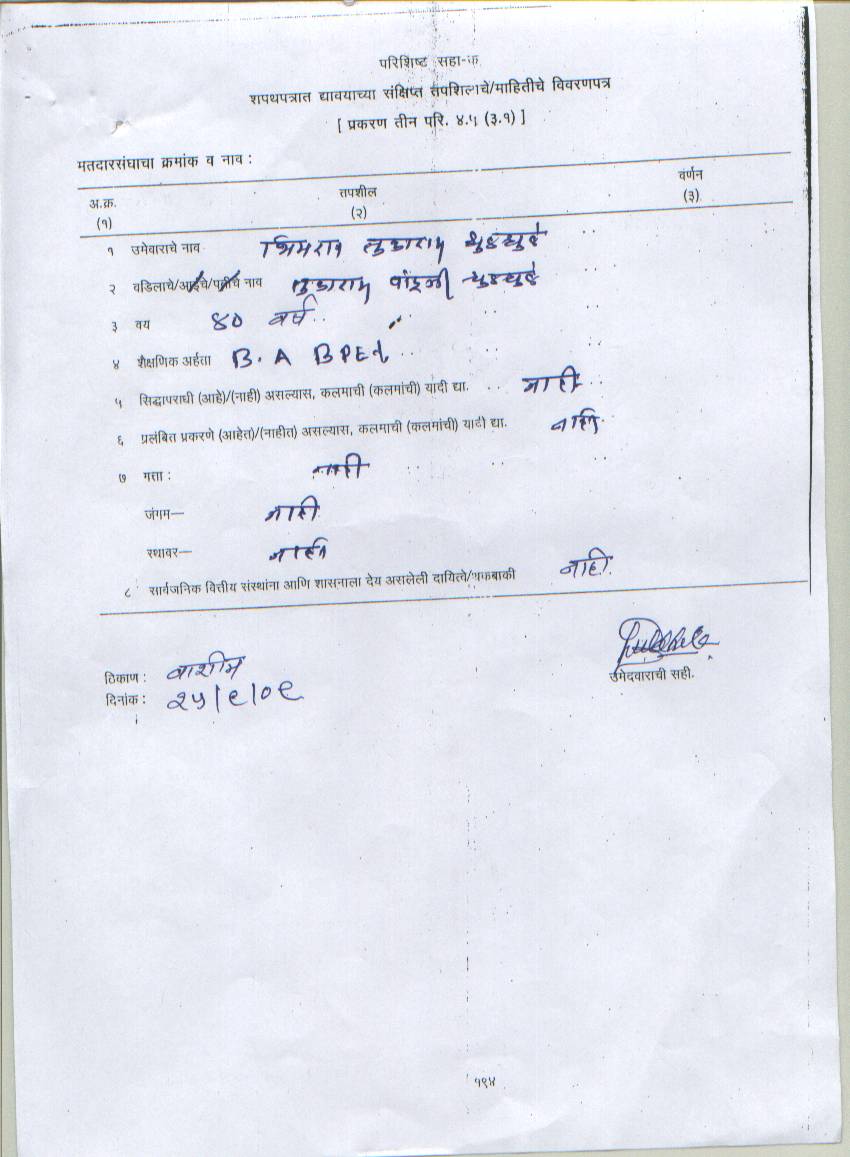 परिशिष्ट सहा-क
शपथपत्रात द्यावयाच्या संक्षिप्त तपशिलाचे/माहितीचे विवरणपत्र
[ प्रकरण तीन परि. ४.५ (३.१) ]
मतदारसंघाचा क्रमांक व नाव :
अ.क्र. तपशील वर्णन
(१) (२) (३)
१ उमेवाराचे नाव भिमराव तुकाराम
२ वडिलाचे/आईचे/पतीचे नाव तुकाराम पांडूजी
३ वय ४० वर्ष
४ शैक्षणिक अर्हता B.A BPEd.
५ सिद्धापराधी (आहे)/(नाही) असल्यास, कलमाची (कलमांची) यादी द्या. नाही
६ प्रलंबित प्रकरणे (आहेत)/(नाहीत) असल्यास, कलमाची (कलमांची) यादी द्या. नाही
७ मत्ता : नाही
जंगम— नाही
स्थावर— नाही
८ सार्वजनिक वित्तीय संस्थांना आणि शासनाला देय असलेली दायित्वे/थकबाकी नाही
ठिकाण : वाशीम
दिनांक : २५/९/०९
उमेदवाराची सही.
१९४